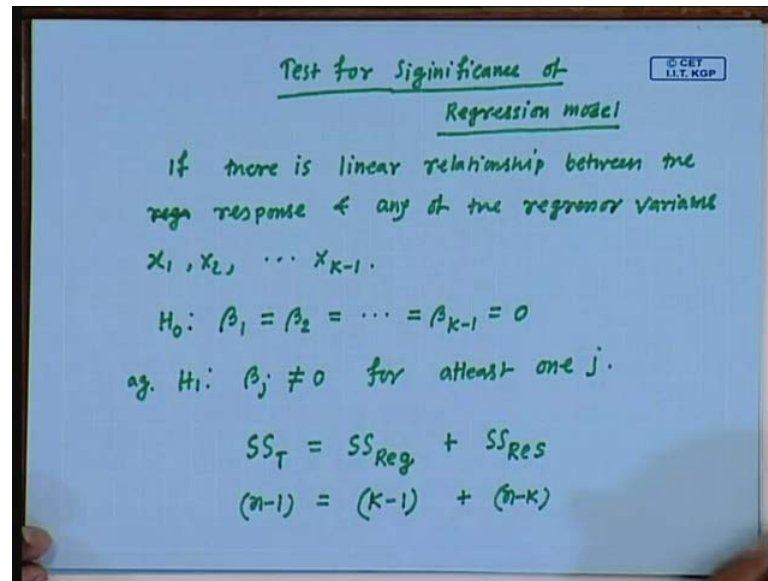 Test for Siginificance of
Regression model
© CET
I.I.T. KGP
If there is linear relationship between the
rega response & any of the regressor variams
x₁, x₂, ... x_{K-1}.
H₀: β₁ = β₂ = ... = β_{K-1} = 0
ag. H₁: β_j ≠ 0 for atleast one j.
SS_T = SS_{Reg} + SS_{Res}
(n-1) = (K-1) + (n-K)